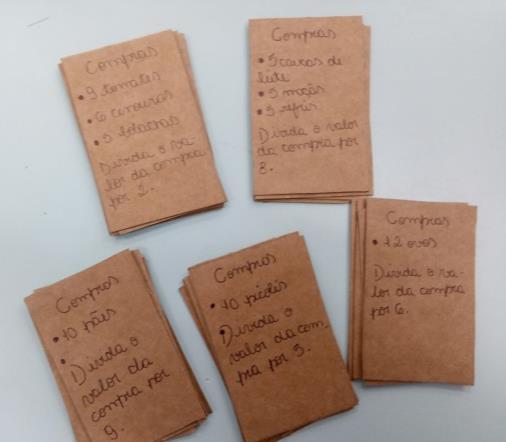 Compras
• 9 tomates
• 6 cenouras
• 5 bolachas
Divida o va-
lor da compra
por 2.
Compras
• 5 caixas de
leite
• 5 maçãs
• 5 refris
Divida o valor
da compra por
8.
Compras
• 12 ovos
Divida o va-
lor da compra
por 6.
Compras
• 10 pães
•
Divida o
valor da
compra por
9.
Compras
• 10 picolés
• Divida o
valor da com-
pra por 5.